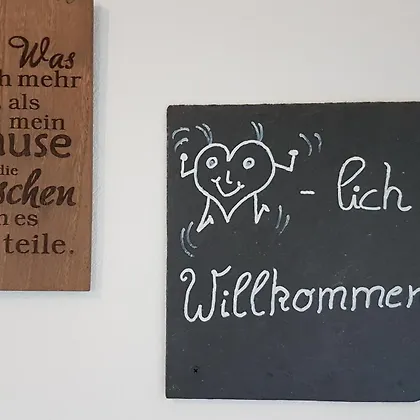 Was
h mehr
als
mein
ause
die
schen
n es
teile.
- lich
Willkommen